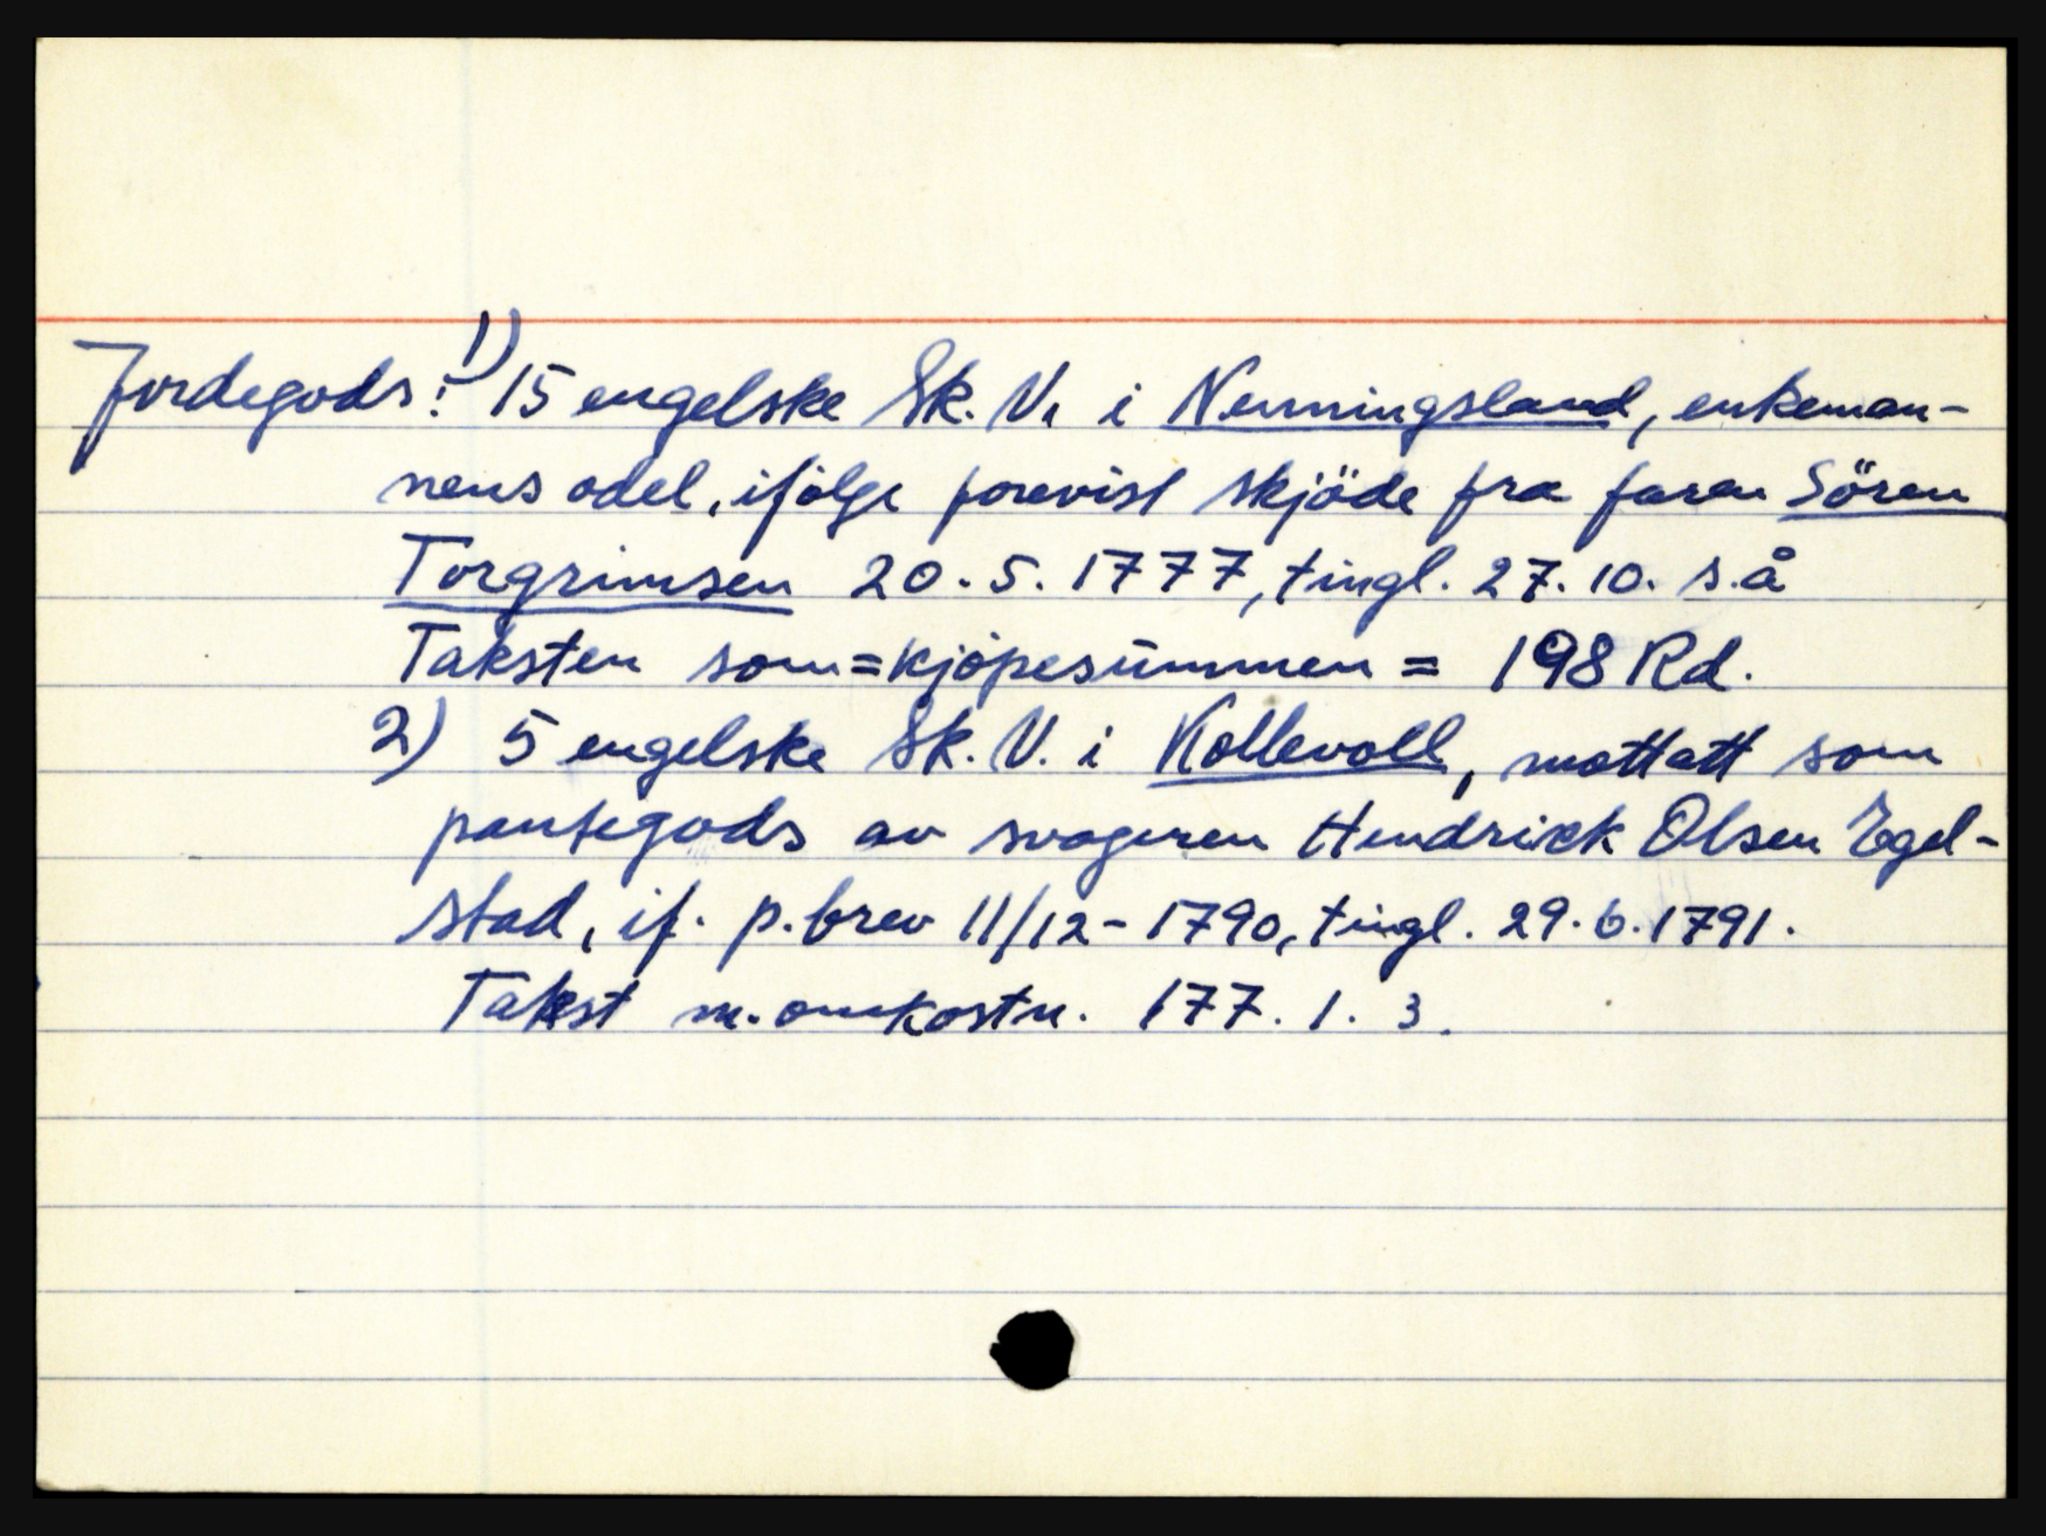 Jordegods: 1) 15 engelske Sk. V. i Nenningsland, enkeman-
nens odel, ifölge forevist skjöde fra faren Sören
Torgrimsen 20. 5. 1777, tingl. 27. 10. s.å
Taksten som = kjöpesummen = 198 Rd.
2) 5 engelske Sk. V. i Kollevoll, mottatt som
pantegods av svogeren Hendrick Olsen Egel-
stad, if. p.brev 11/12 - 1790, tingl. 29. 6. 1791.
Takst m. omkostn. 177. 1. 3.